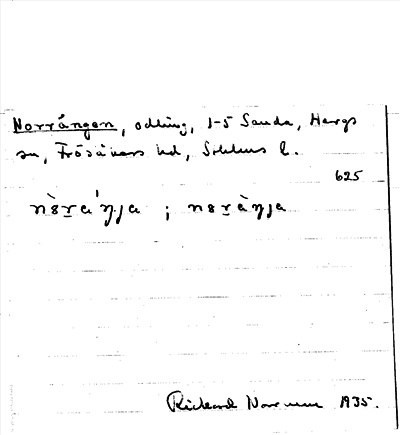 Norrängen, odling, 1-5 Sanda, Hargs
sn, Frösåkers hd, Sthlms l.
625
nòrá'ŋja ; noràŋja
Rickard Norenum 1935.